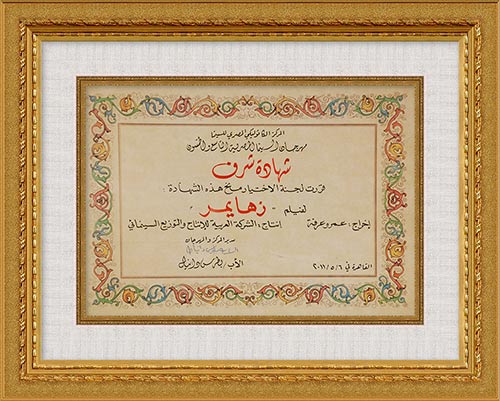 المركز الكاثوليكي المصري للسينما
مهرجان السينما المصرية التاسع والخمسون
شهادة شرف
قررت لجنة الاختيار منح هذه الشهادة :
لفيلم - زهايمر -
إخراج : عمرو عرفة إنتاج : الشركة العربية للإنتاج والتوزيع السينمائي
مدير المركز والمهرجان
الأب / بطرس دانيال
القاهرة في ٢٠١١/٥/٦